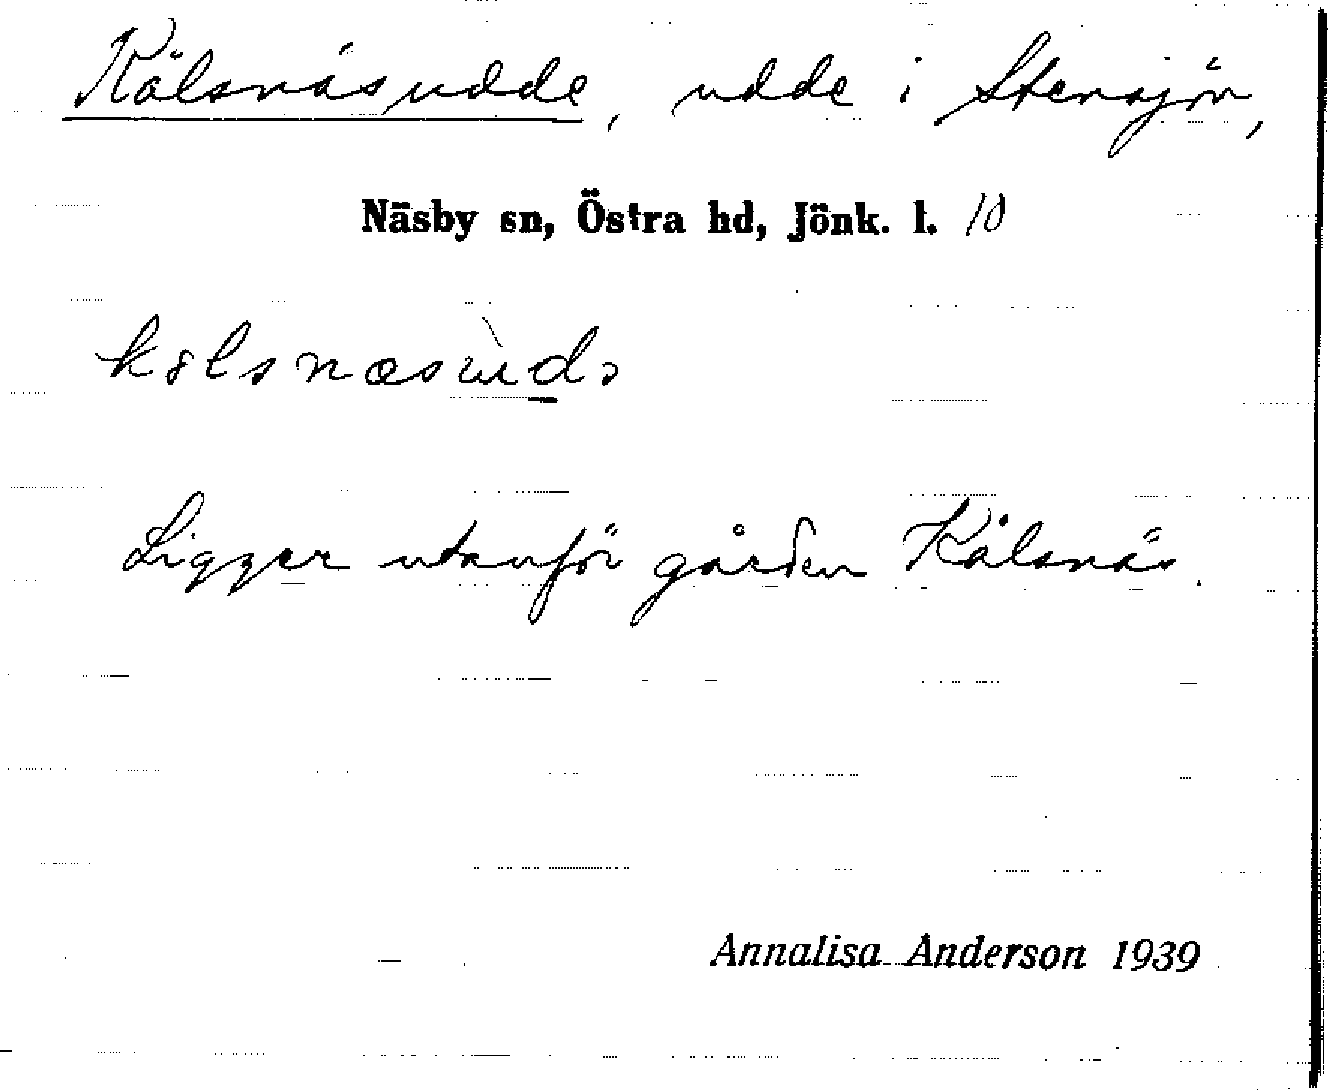 Kålsnäsudde, udde i Stensjön,
Näsby sn, Östra hd, Jönk. l. 10
Ligger utanför gården Kålsnäs.
Annalisa Anderson 1939